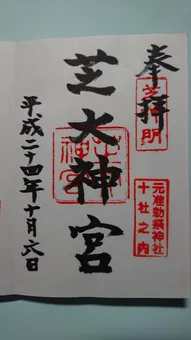 奉拝
芝神明
芝大神宮
元准勅祭神社
十社之内
平成二十四年十月六日